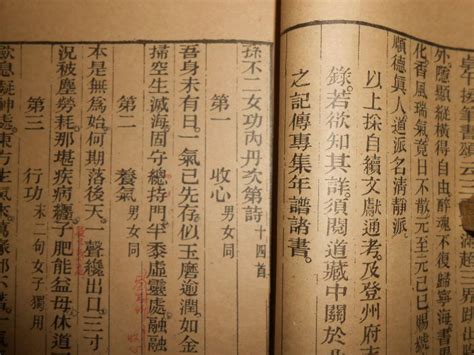 外隱顯縱橫得自由醉魂不復歸寧海書
化香風瑞氣竟日不散元至元己巳賜
順德真人道派名清靜派
以上採自續文獻通考及登州府
錄若欲知其詳須閱道藏中關於
之記傳專集年譜諸書。
孫不二女功內丹次第詩 十四首
第一 收心 男女同
吾身未有日。一氣已先存。似玉磨逾潤。如金
掃空生滅海。固守總持門。半黍虛靈處。融融
第二 養氣 男女同
本是無為始。何期落後天。一聲纔出口。三寸
況被塵勞耗。那堪疾病纏。子肥能益母。休道
第三 行功 末二句女子獨用
歛息凝神處。東方生氣來。萬緣都不